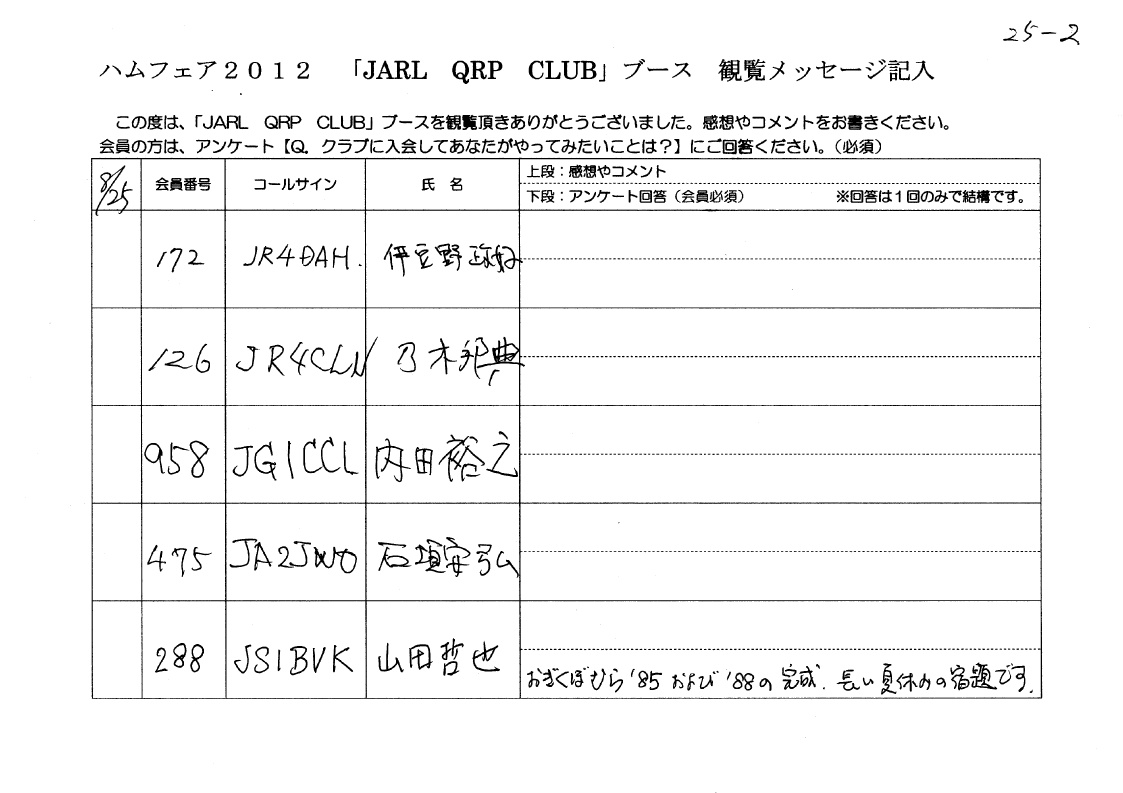 25-2
ハムフェア2012 「JARL QRP CLUB」ブース 観覧メッセージ記入
この度は、「JARL QRP CLUB」ブースを観覧頂きありがとうございました。感想やコメントをお書きください。
会員の方は、アンケート【Q. クラブに入会してあなたがやってみたいことは?】にご回答ください。(必須)
8/25 会員番号 コールサイン 氏 名 上段:感想やコメント
下段:アンケート回答(会員必須) ※回答は1回のみで結構です。
172 JR4DAH. 伊豆野
126 JR4CLN 乃木邦典
958 JG1CCL 内田裕之
475 JA2JWO 石垣安弘
288 JS1BVK 山田哲也
おぎくぼむら'85および'88の完成. 長い夏休みの宿題です.